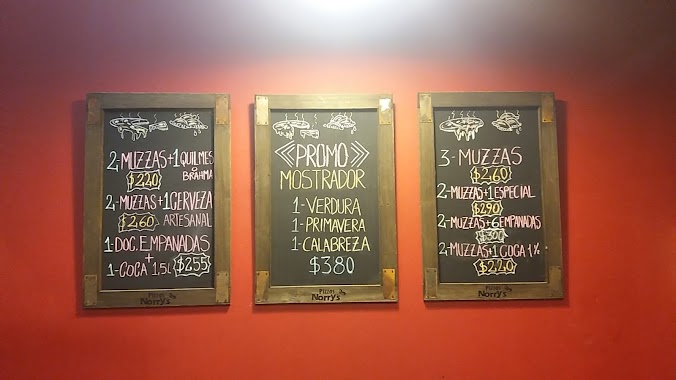 2-MUZZAS+1QUILMES
Ó BRAHMA
$220
2-MUZZAS+1CERVEZA
$260 ARTESANAL
1 DOC. EMPANADAS
+
1-COCA 1.5L $255
Pizzas
Norry's
PROMO
MOSTRADOR
1-VERDURA
1-PRIMAVERA
1-CALABREZA
$380
Pizzas
Norry's
3-MUZZAS
$260
2-MUZZAS+1ESPECIAL
$290
2-MUZZAS+6EMPANADAS
$300
2-MUZZAS+1COCA 1½
$220
Pizzas
Norry's